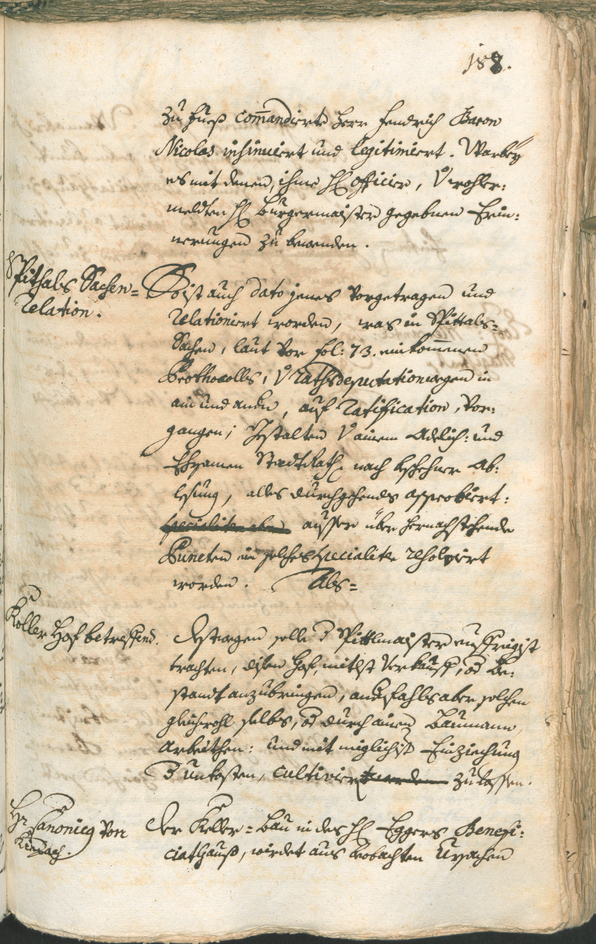 188.
zu Fuess com̄andierte Herr Fendrich Baron
Nicolas insinuiert und legitimiert. Warbey
es mit denen, ihme H. Officier, V. wohler-
meldten H. Burgermaister gegebnen Erin-
nerungen zu bewenden.
Spithals Sachen-
relation.
So ist auch dato jenes vorgetragen und
relationiert worden, was in Spittals-
Sachen, laut vor fol: 73. einkommenen
Prothocolls, V. Rathsdeputation wegen in
ain und andern, auf ratification, vor-
gangen; Gestalten V. ainem Adelich: und
Ehrsamen StadtRath nach beschehner Ab-
lesung, alles durchgehends approbiert:
ausser über hernachstehende
Puncten in specialite resolviert
worden. Als-
Koller Hof betreffend.
Destwegen solle d Spitlmaister eussrigist
trachten, disen Hof, mitlst Verkauff, od Be-
standt anzubringen, andrfahls aber solchen
gleichwohl selbs, od durch ainen Baumann
arbeithen: und mit möglichist Einziechung
d Unkosten, cultiviern zu lassen.
Hr. Canonicg von
Der Keller-Bau in des H. Eggers Benefi-
ciat Hauss, wirdet aus beobachten Ursachen